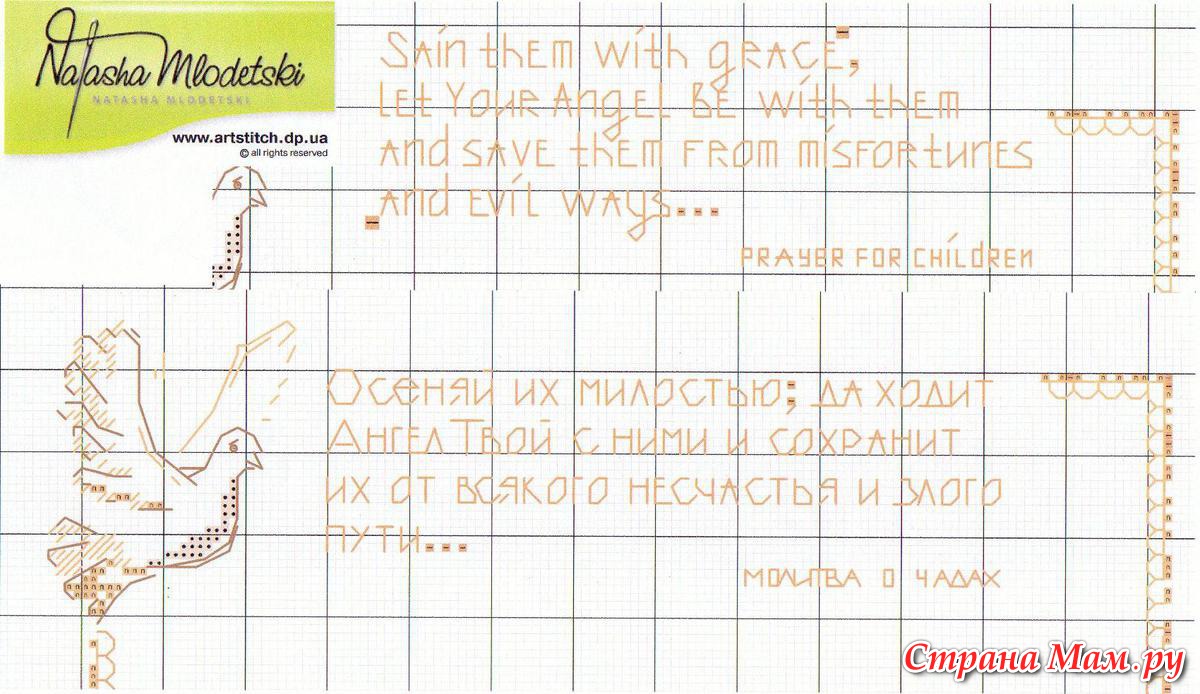 Natasha Mlodetski
NATASHA MLODETSKI
www.artstitch.dp.ua
© all rights reserved
Sain them with grace,
Let Your Angel be with them
and save them from misfortunes
and evil ways...
PRAYER FOR ChildREN
Осеняй их милостью; да ходит
Ангел Твой с ними и сохранит
их от всякого несчастья и злого
пути...
МОЛИТВА О ЧАДАХ
Страна Мам.ру